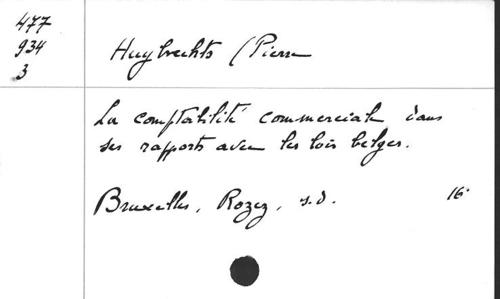 477
934
3
Huybrechts (Pierre
La comptabilité commerciale dans
ses rapports avec les lois belges.
Bruxelles, Rozez, s.d. 16°